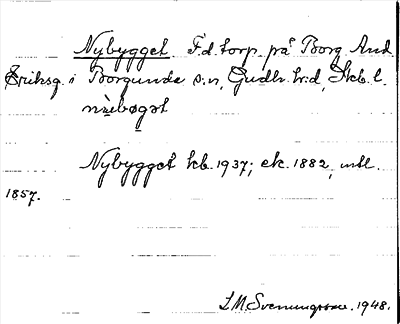 Nybygget F.d. torp på Borg And.
Eriksg. i Borgunda s:n, Gudh. h:d, Skb. l.
nỳebøgət
Nybygget kb. 1937; ek. 1882, utbl.
1857.
S.M. Svenungsson. 1948.